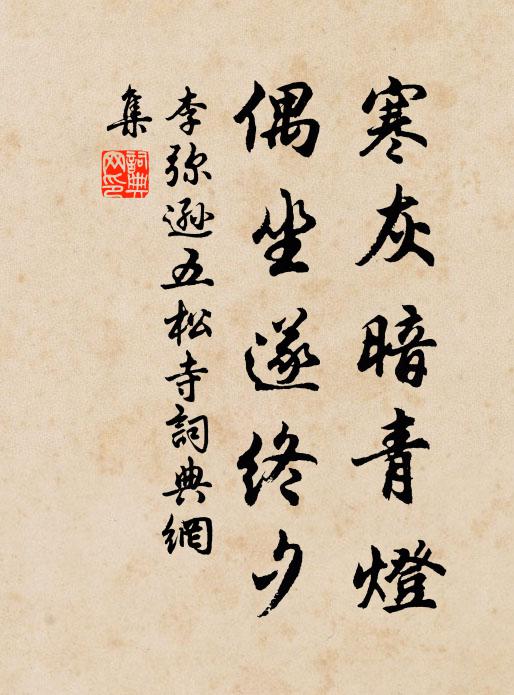 寒灰暗青燈
偶坐遂終夕
李弥遜五松寺詞典網
集
詞典
网印